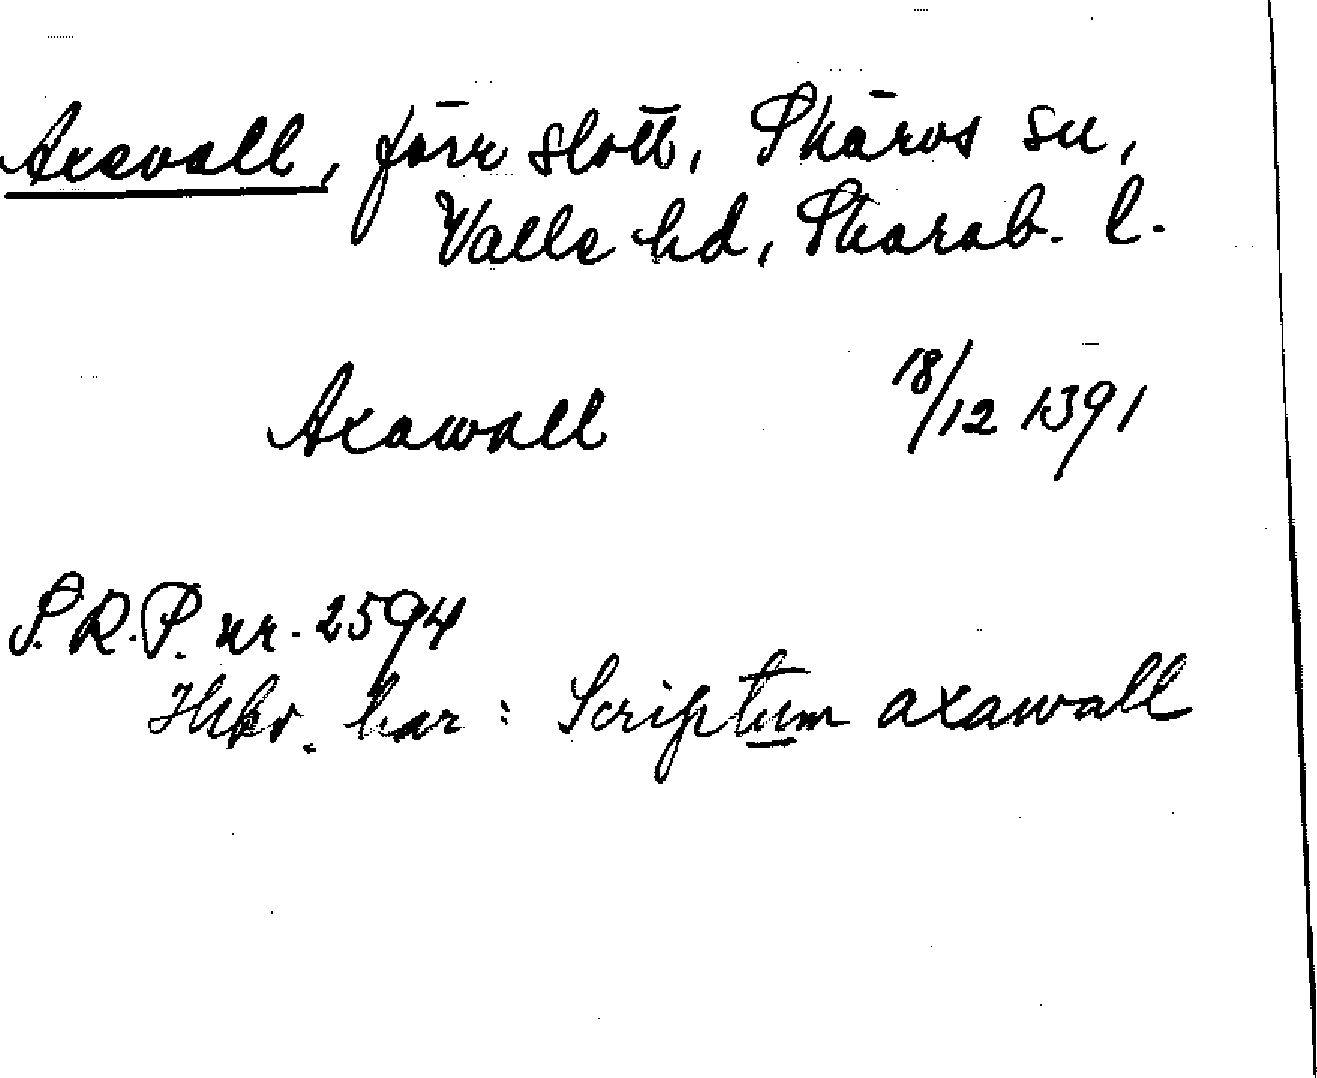 Axevall, förr slott, Skärvs sn,
Valle hd, Skarab. l.
Axawall 18/12 1391
S.R.P. nr. 2594
Hskr. har: Scriptum axawall